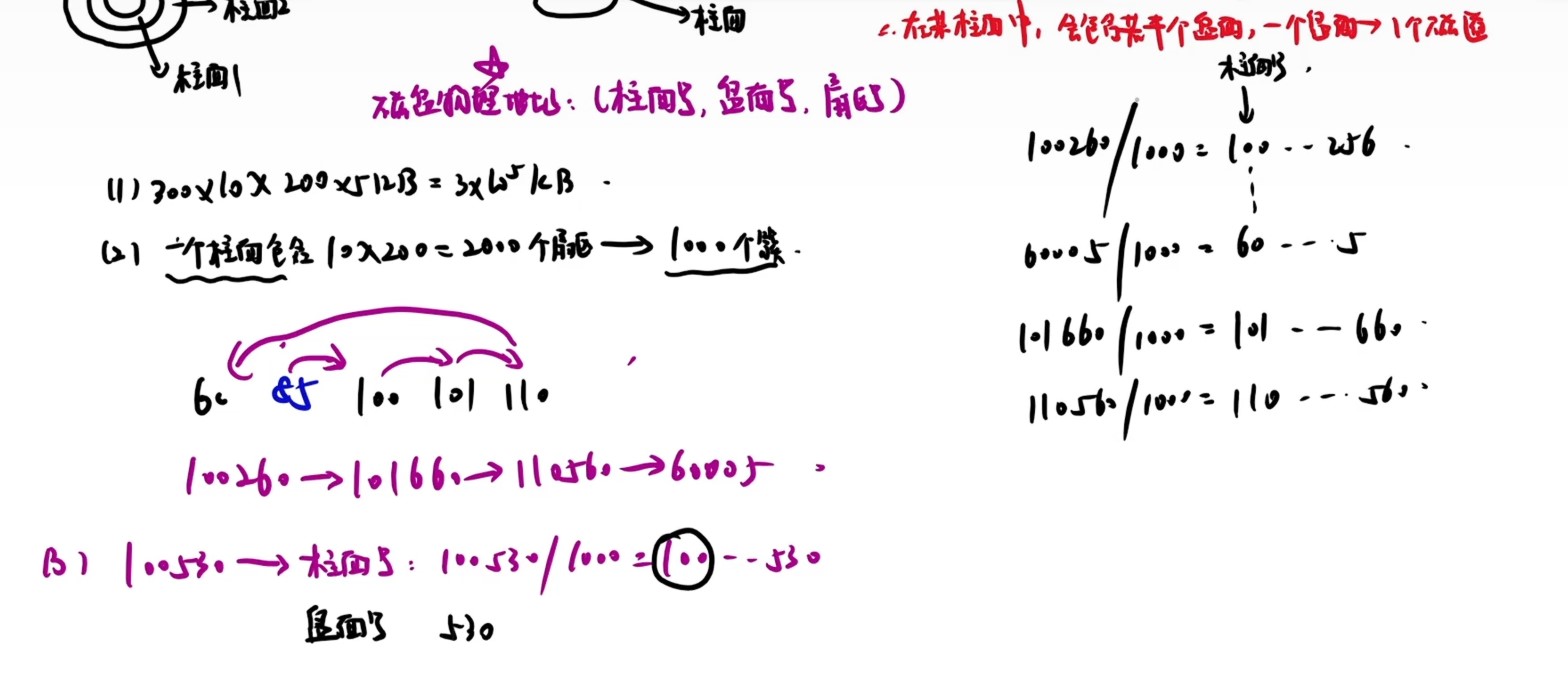 柱面2
柱面
柱面1
c.在某柱面中，会包含若干个盘面，一个盘面→1个磁道
☆
磁盘物理地址：(柱面号，盘面号，扇区号)
柱面号.
↓
100260/1000=100--256.
(1) 300×10×200×512B=3×10⁵kB.
(2) 一个柱面包含10×200=2000个扇区→1000个簇.
60005/1000=60---5
101660/1000=101--660.
60 85 100 101 110
110560/1000=110---560.
100260→101660→110560→60005
(3) 100530→柱面号：100530/1000=100--530
盘面号 530